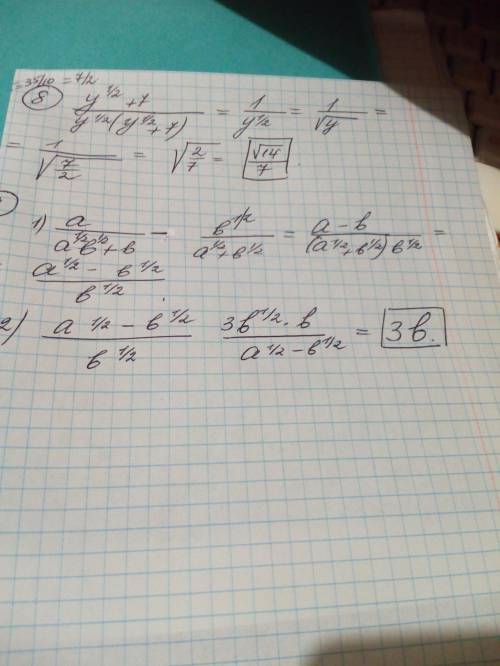 = 35/10 = 7/2
8
y^1/2 + 7 / y^1/2 (y^1/2 + 7) = 1 / y^1/2 = 1 / √y =
= 1 / √(7/2) = √(2/7) = √14 / 7 .
1) a / a^1/2 b^1/2 + b − b^1/2 / a^1/2 + b^1/2 = a − b / (a^1/2 + b^1/2) b^1/2 =
a^1/2 − b^1/2 / b^1/2 .
2) a^1/2 − b^1/2 / b^1/2 3b^1/2 · b / a^1/2 − b^1/2 = 3b.